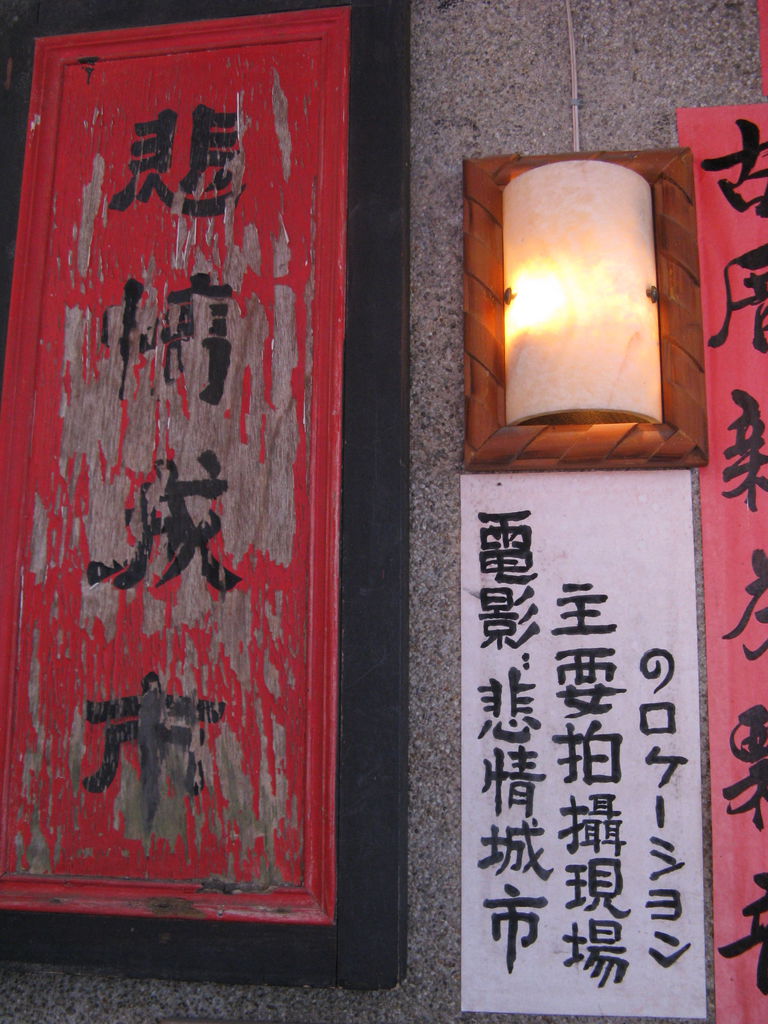 悲情城市
電影:悲情城市
主要拍攝現場
のロケーション